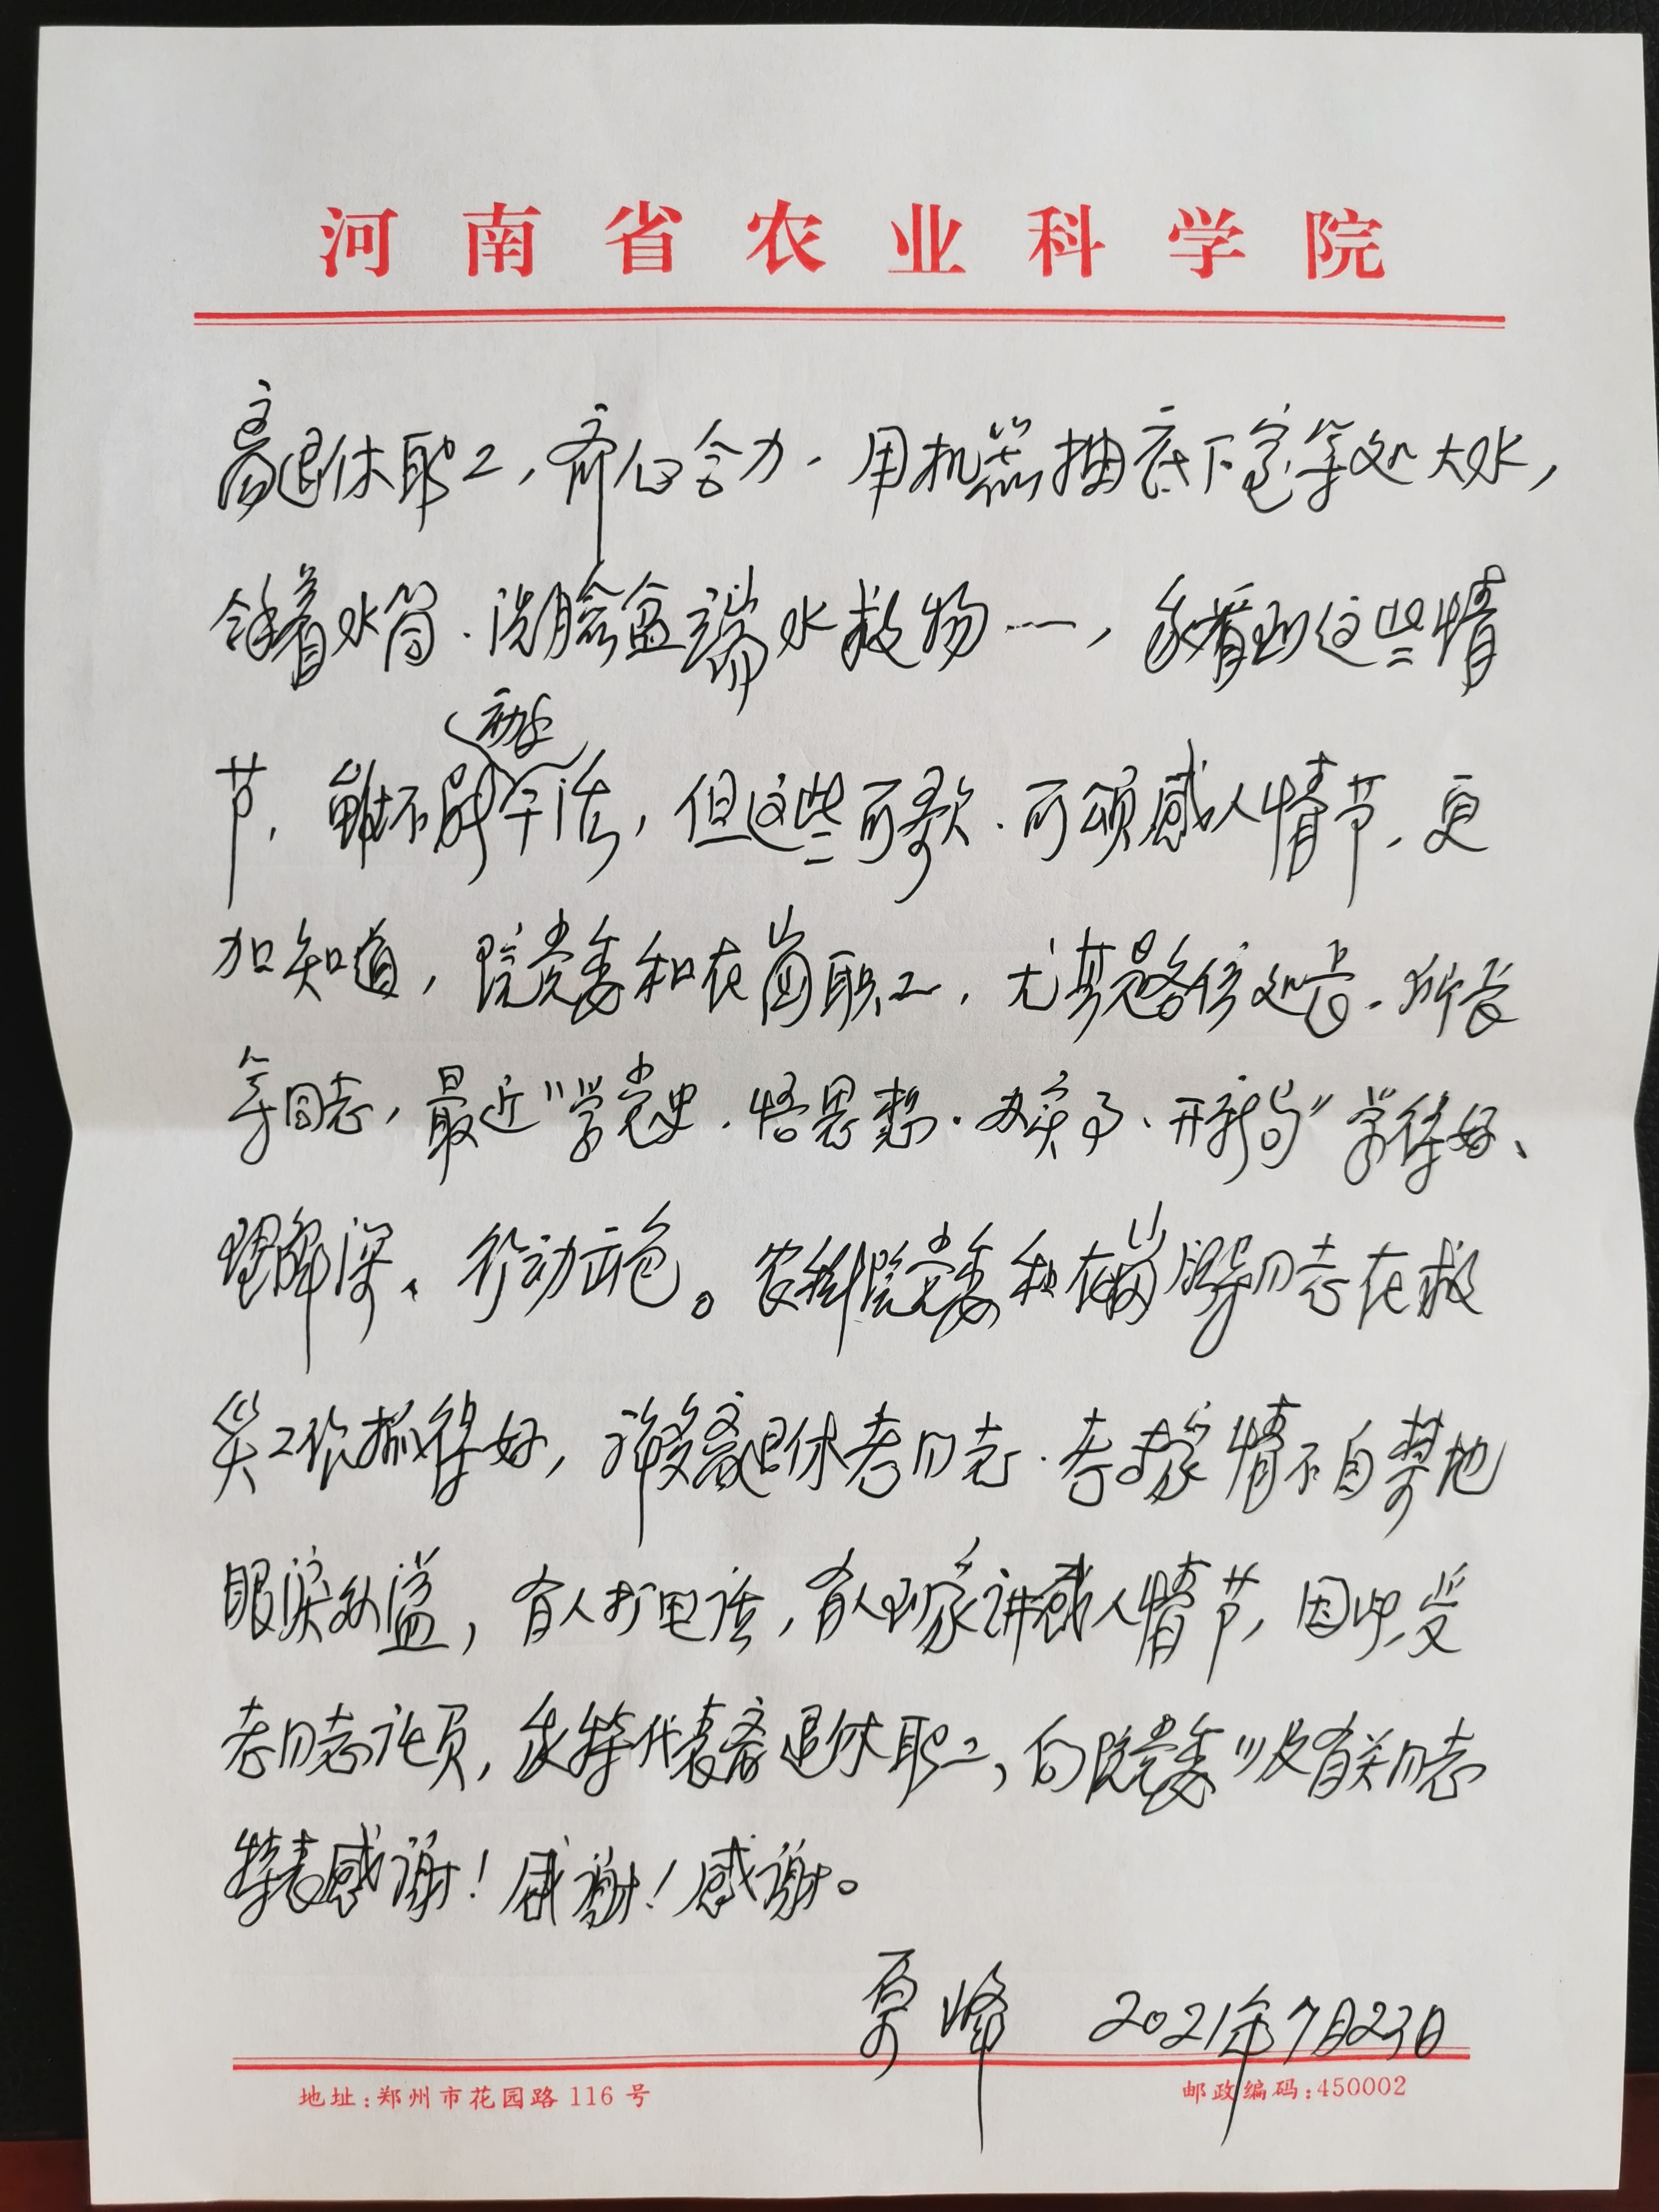 河南省农业科学院
离退休职工，齐心合力、用机器抽底下室等处大水，
拿着水筒、洗脸盆端水救物……，我看到这些情
节，虽不能(动手)干活，但这些可歌、可颂感人情节，更
加知道，院党委和在岗职工，尤其是各位处长、所长
等同志，最近"学党史、悟思想、办实事、开新局"学得好、
理解深、行动出色。农科院党委和在岗领导同志在救
灾工作抓得好，许多离退休老同志、老专家情不自禁地
眼泪外溢，有人打电话，有人到家讲感人情节，因此，受
老同志托负，我特代表离退休职工，向院党委以及有关同志
特表感谢！感谢！感谢。
夏峰 2021年7月23日
地址:郑州市花园路116号 邮政编码:450002